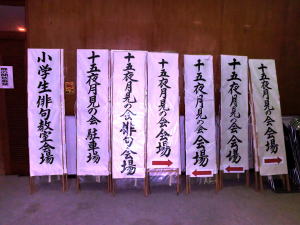 小学生俳句教室会場
十五夜月見の会 駐車場
十五夜月見の会 俳句会場
十五夜月見の会会場
十五夜月見の会会場
十五夜月見の会会場
十五夜月見の会会場